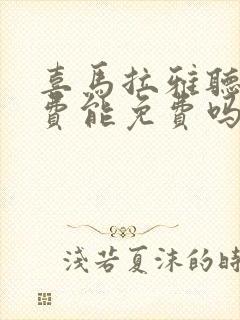 喜馬拉雅聽
費能免費嗎
淺若夏沫的時